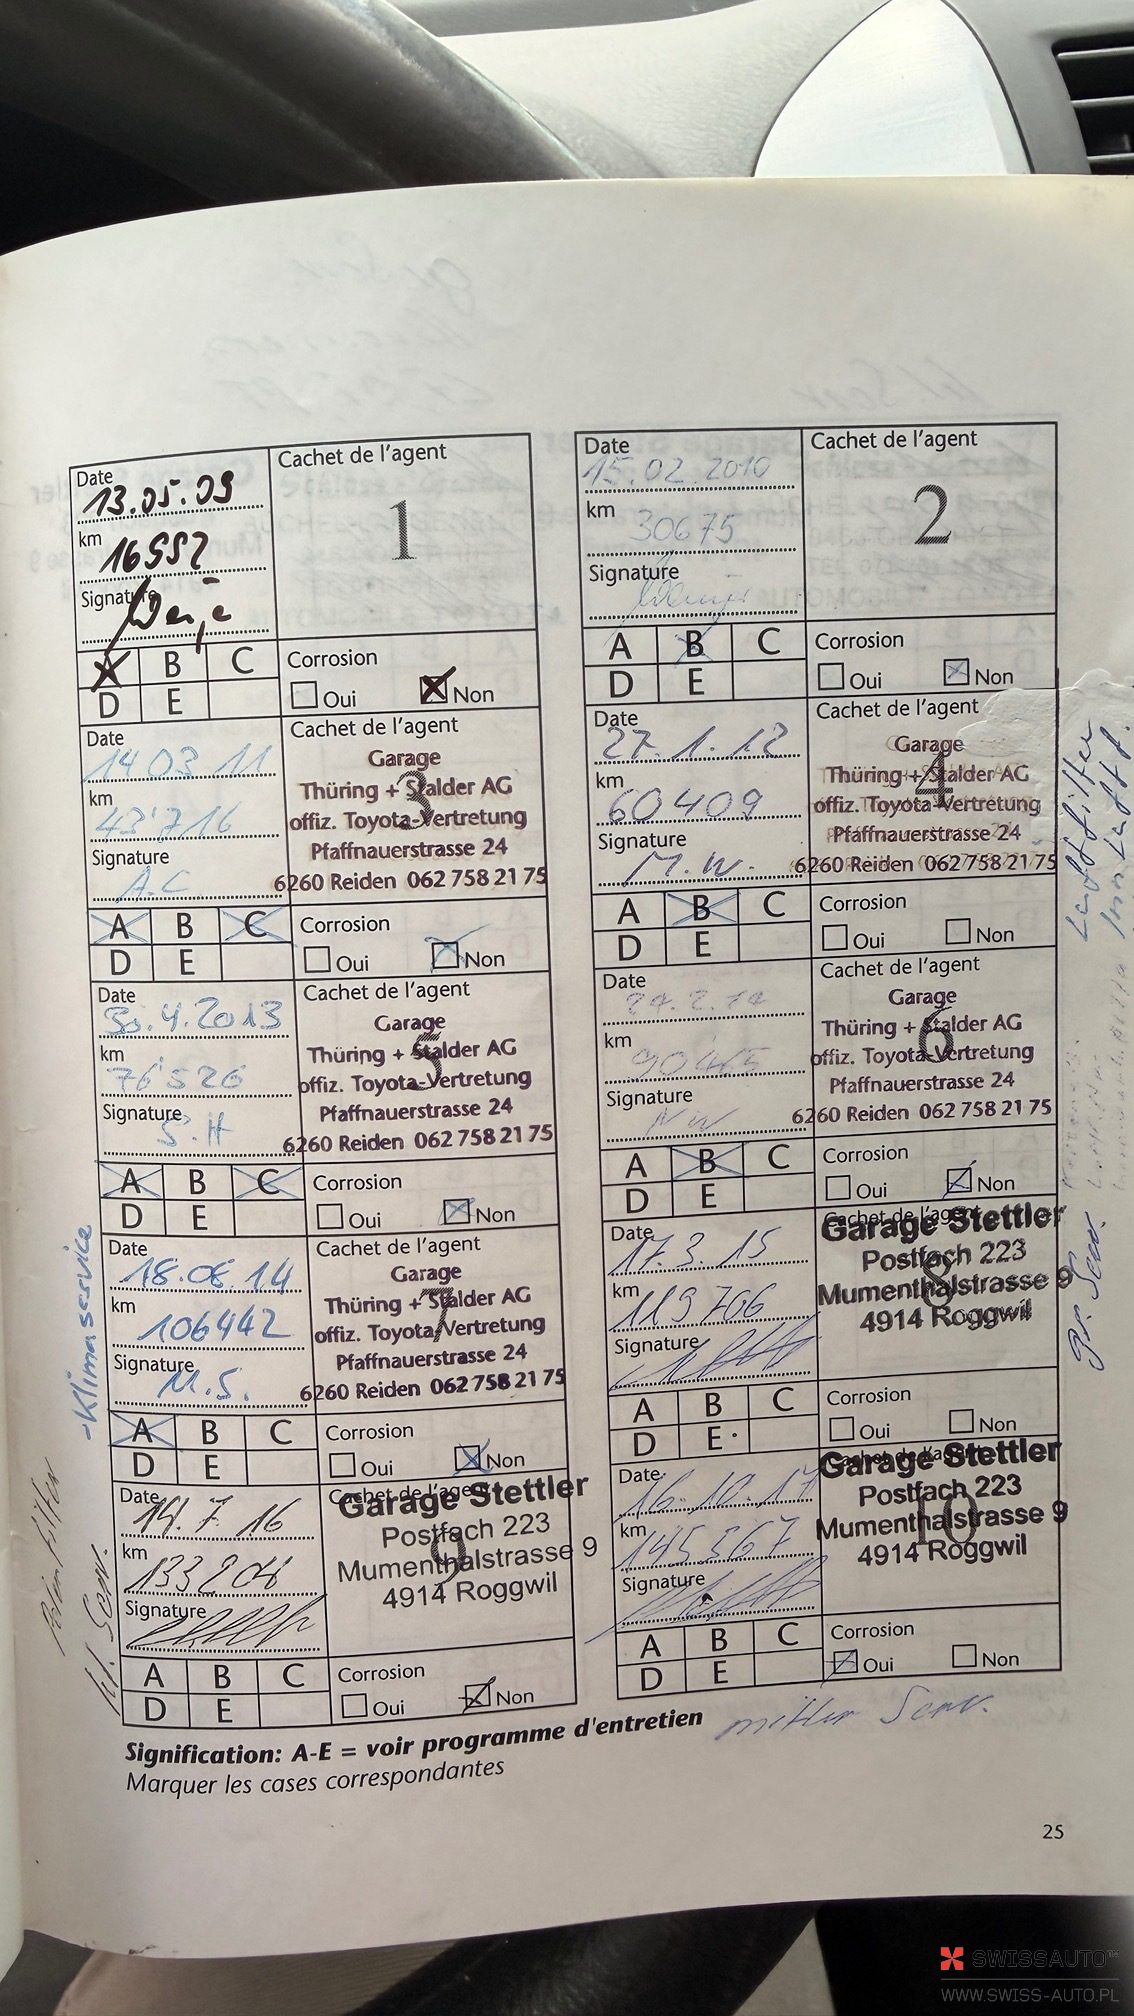 Date
13.05.09
km
16552
Signature
Cachet de l'agent
1
A B C
D E
Corrosion
Oui Non
Date
15.02.2010
km
30675
Signature
Cachet de l'agent
2
A B C
D E
Corrosion
Oui Non
Date
14 03 11
km
43'716
Signature
A.C
Cachet de l'agent
3
Garage
Thüring + Stalder AG
offiz. Toyota-Vertretung
Pfaffnauerstrasse 24
6260 Reiden 062 758 21 75
A B C
D E
Corrosion
Oui Non
Date
27.1.12
km
60409
Signature
M.W.
Cachet de l'agent
4
Garage
Thüring + Stalder AG
offiz. Toyota-Vertretung
Pfaffnauerstrasse 24
6260 Reiden 062 758 21 75
A B C
D E
Corrosion
Oui Non
Luftfilter
Date
30.4.2013
km
76'526
Signature
S.H
Cachet de l'agent
5
Garage
Thüring + Stalder AG
offiz. Toyota-Vertretung
Pfaffnauerstrasse 24
6260 Reiden 062 758 21 75
A B C
D E
Corrosion
Oui Non
Date
24.2.14
km
90465
Signature
NW
Cachet de l'agent
6
Garage
Thüring + Stalder AG
offiz. Toyota-Vertretung
Pfaffnauerstrasse 24
6260 Reiden 062 758 21 75
A B C
D E
Corrosion
Oui Non
-Klimaservice
Date
18.08.14
km
106442
Signature
M.S.
Cachet de l'agent
7
Garage
Thüring + Stalder AG
offiz. Toyota-Vertretung
Pfaffnauerstrasse 24
6260 Reiden 062 758 21 75
A B C
D E
Corrosion
Oui Non
Date
17.3.15
km
119706
Signature
Cachet de l'agent
8
Garage Stettler
Postfach 223
Mumenthalstrasse 9
4914 Roggwil
A B C
D E
Corrosion
Oui Non
Gr. Serv.
Date
14.7.16
km
133206
Signature
Cachet de l'agent
9
Garage Stettler
Postfach 223
Mumenthalstrasse 9
4914 Roggwil
A B C
D E
Corrosion
Oui Non
kl. Serv.
Date
16.10.17
km
145367
Signature
Cachet de l'agent
10
Garage Stettler
Postfach 223
Mumenthalstrasse 9
4914 Roggwil
A B C
D E
Corrosion
Oui Non
mittlerer Serv.
Signification: A-E = voir programme d'entretien
Marquer les cases correspondantes
25
SWISSAUTO™
WWW.SWISS-AUTO.PL